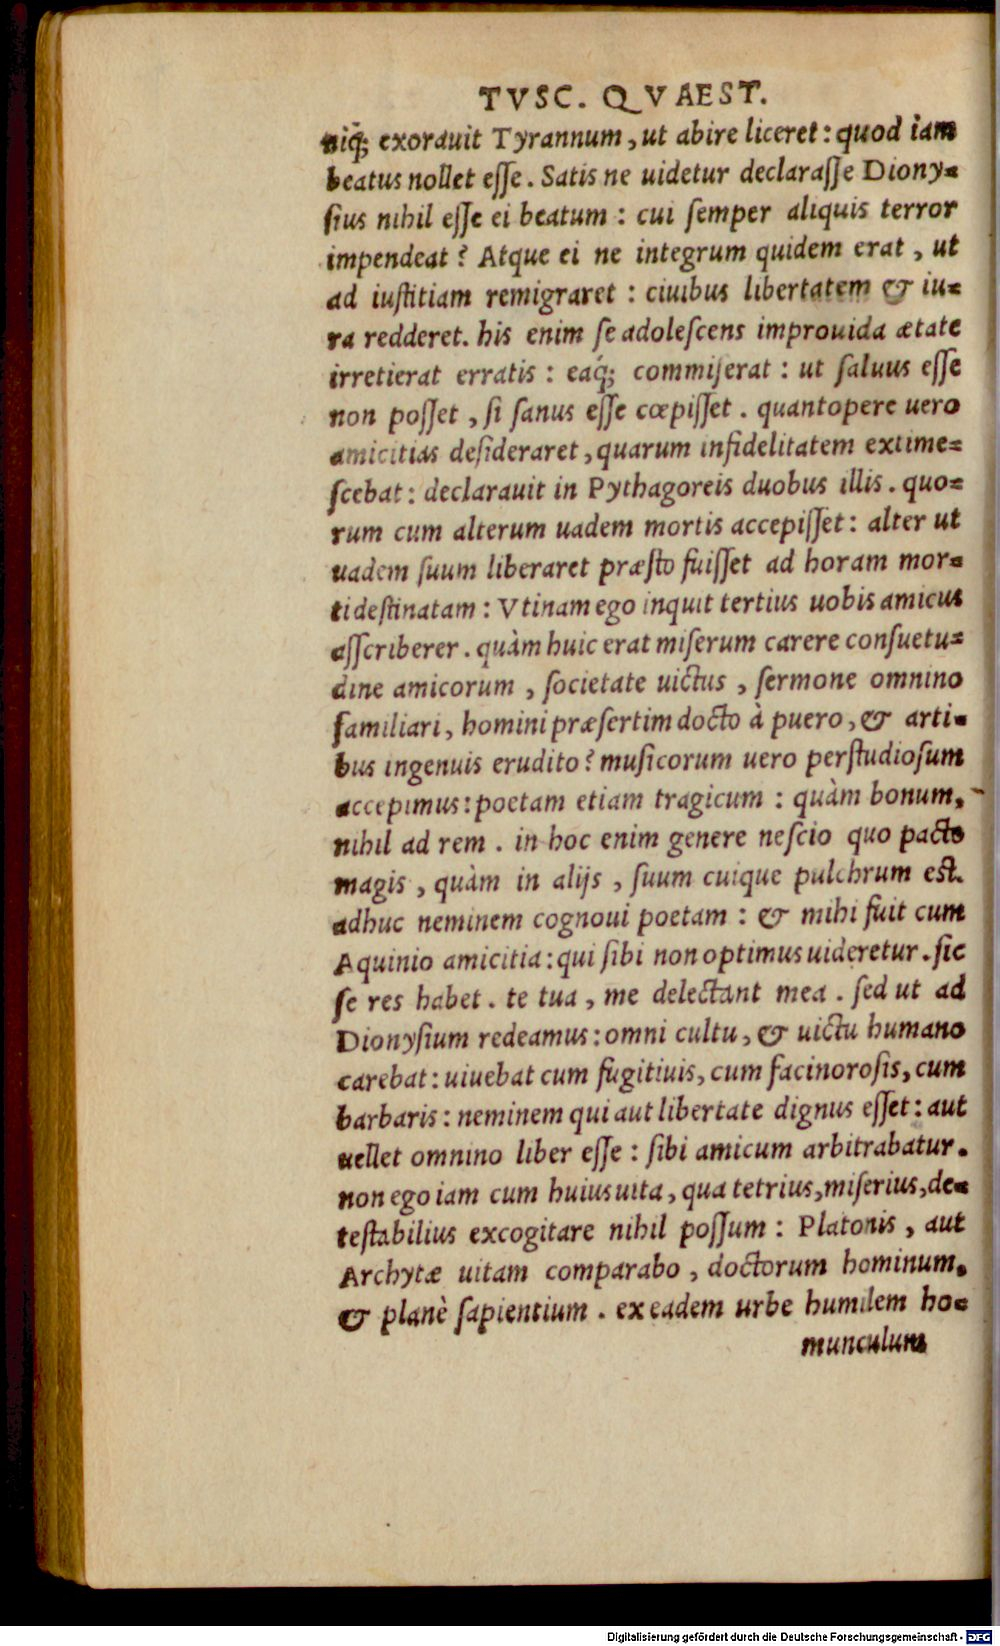 TVSC. QVAEST.
niq́; exorauit Tyrannum, ut abire liceret: quod iam
beatus nollet eſſe. Satis ne uidetur declaraſſe Diony-
ſius nihil eſſe ei beatum: cui ſemper aliquis terror
impendeat? Atque ei ne integrum quidem erat, ut
ad iuſtitiam remigraret: ciuibus libertatem & iu-
ra redderet. his enim ſe adoleſcens improuida ætate
irretierat erratis: eaq́; commiſerat: ut ſaluus eſſe
non poſſet, ſi ſanus eſſe cœpiſſet. quantopere uero
amicitias deſideraret, quarum infidelitatem extime-
ſcebat: declarauit in Pythagoreis duobus illis. quo-
rum cum alterum uadem mortis accepiſſet: alter ut
uadem ſuum liberaret præſto fuiſſet ad horam mor-
ti deſtinatam: Vtinam ego inquit tertius uobis amicus
aſſcriberer. quàm huic erat miſerum carere conſuetu-
dine amicorum, ſocietate uictus, ſermone omnino
familiari, homini præſertim docto à puero, & arti-
bus ingenuis erudito? muſicorum uero perſtudioſum
accepimus: poetam etiam tragicum: quàm bonum,
nihil ad rem. in hoc enim genere neſcio quo pacto
magis, quàm in alijs, ſuum cuique pulchrum eſt.
adhuc neminem cognoui poetam: & mihi fuit cum
Aquinio amicitia: qui ſibi non optimus uideretur. ſic
ſe res habet. te tua, me delectant mea. ſed ut ad
Dionyſium redeamus: omni cultu, & uictu humano
carebat: uiuebat cum fugitiuis, cum facinoroſis, cum
barbaris: neminem qui aut libertate dignus eſſet: aut
uellet omnino liber eſſe: ſibi amicum arbitrabatur.
non ego iam cum huius uita, qua tetrius, miſerius, de-
teſtabilius excogitare nihil poſſum: Platonis, aut
Archytæ uitam comparabo, doctorum hominum,
& planè ſapientium. ex eadem urbe humilem ho-
munculum
Digitalisierung gefördert durch die Deutsche Forschungsgemeinschaft - DFG